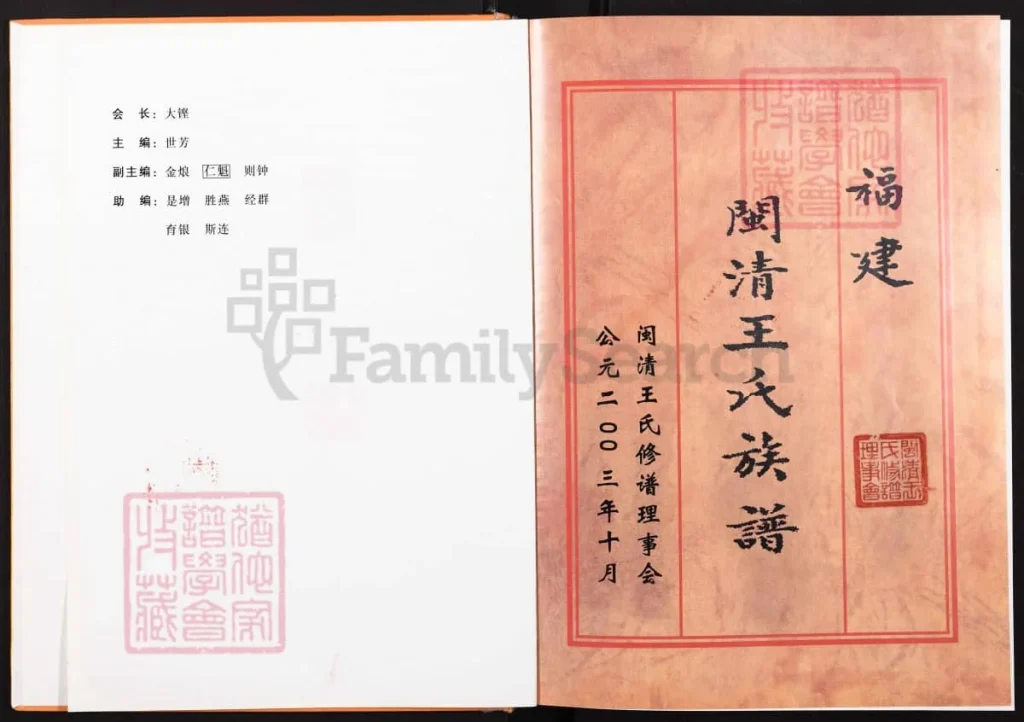 会 长：大铿
主 编：世芳
副主编：金烺 仁魁 则钟
助 编：是增 胜燕 经群
育银 斯连
福建
閩清王氏族譜
闽清王氏修谱理事会
公元二〇〇三年十月
閩清王氏修譜理事會
譜學會
收藏
FamilySearch